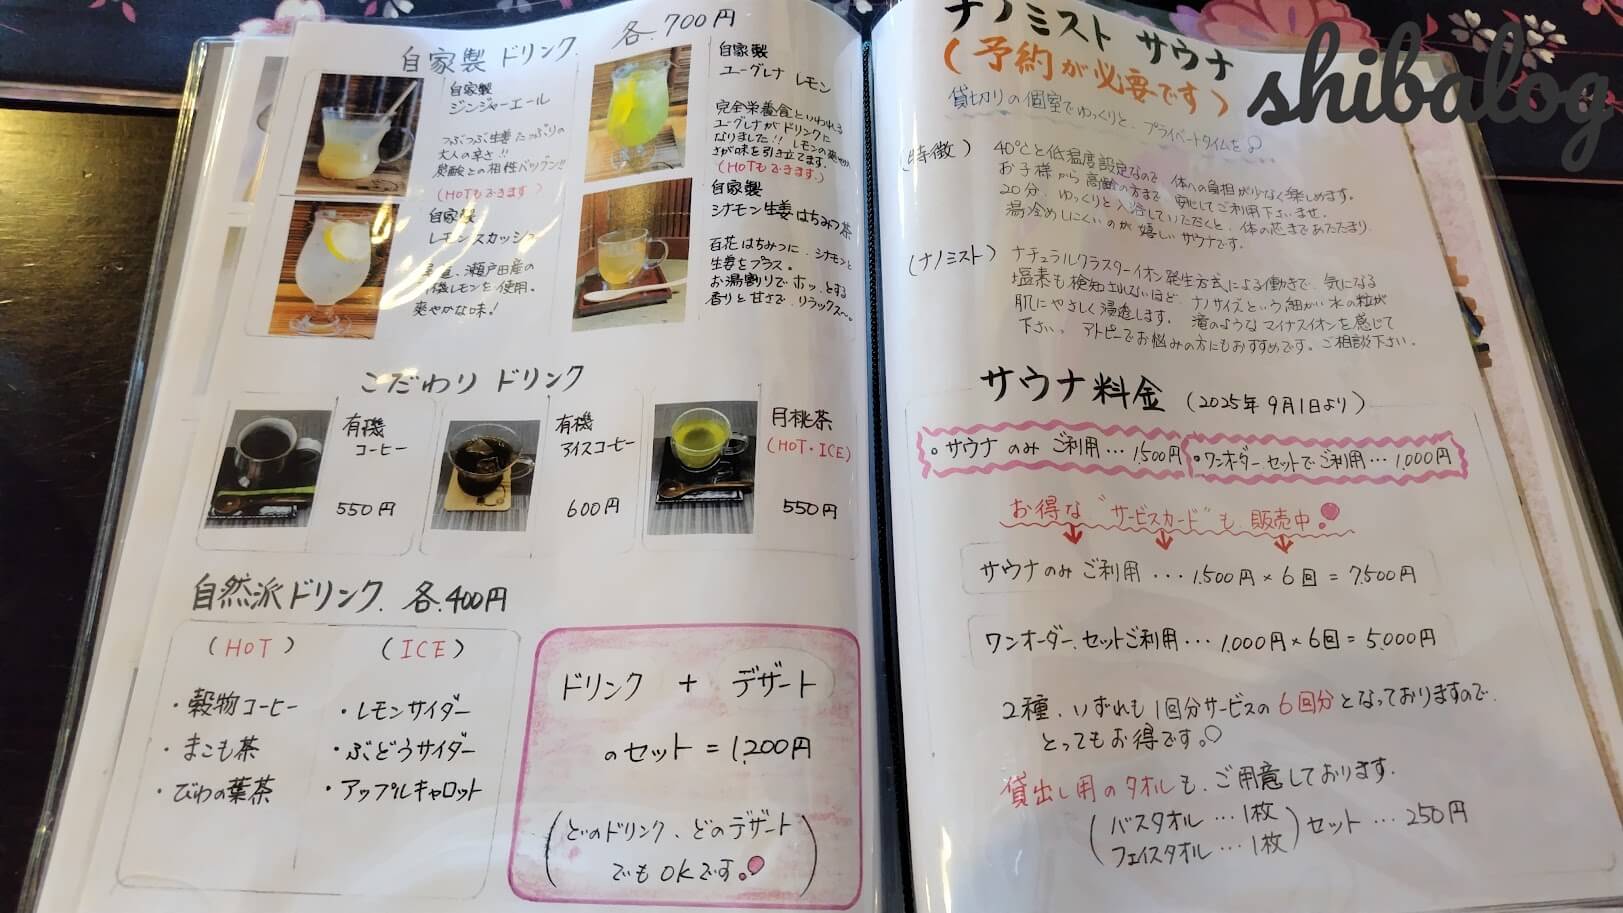 自家製 ドリンク 各.700円
自家製
ジンジャーエール
つぶつぶ生姜たっぷりの
大人の辛さ!!
炭酸との相性バツグン!!
(HOTもできます)
自家製
ユーグレナ レモン
完全栄養食といわれる
ユーグレナがドリンクに
なりました!! レモンの
さが味を引き立てます。
(HOTもできます。)
自家製
レモンスカッシュ
瀬戸田産の
レモンを使用。
爽やかな味!
自家製
シナモン生姜はちみつ茶
百花はちみつに、シナモンと
生姜をプラス。
お湯割りでホッとする
香りと甘さで、リラックス〜。
こだわり ドリンク
有機
コーヒー
550円
有機
アイスコーヒー
600円
月桃茶
(HOT・ICE)
550円
自然派ドリンク. 各.400円
(HOT)
・穀物コーヒー
・まこも茶
・びわの葉茶
(ICE)
・レモンサイダー
・ぶどうサイダー
・アップルキャロット
ドリンク + デザート
のセット = 1,200円
(どのドリンク、どのデザート
でもOKです。)
ナノミスト サウナ
(予約が必要です)
貸切りの個室でゆっくりと、プライベートタイムを
(特徴) 40℃と低温度設定なので、体への負担が少なく楽しめます。
お子様から高齢の方まで、安心してご利用下さいませ。
20分、ゆっくりと入浴していただくと、体の芯まであたたまり
湯冷めしにくいのが嬉しいサウナです。
(ナノミスト) ナチュラルクラスターイオン発生方式による働きで、気になる
塩素も検知されないほど、ナノサイズという細かい水の粒が
肌にやさしく浸透します。滝のようなマイナスイオンを感じて
下さい。アトピーでお悩みの方にもおすすめです。ご相談下さい。
サウナ料金 (2025年9月1日より)
・サウナのみ ご利用…1,500円
・ワンオーダー.セットでご利用…1,000円
お得な"サービスカード"も、販売中
サウナのみ ご利用・・・1,500円×6回=7,500円
ワンオーダー.セットご利用・・・1,000円×6回=5,000円
2種、いずれも1回分サービスの6回分となっておりますので、
とってもお得です。
貸出し用のタオルも、ご用意しております。
(バスタオル…1枚
フェイスタオル…1枚)セット…250円
shibalog